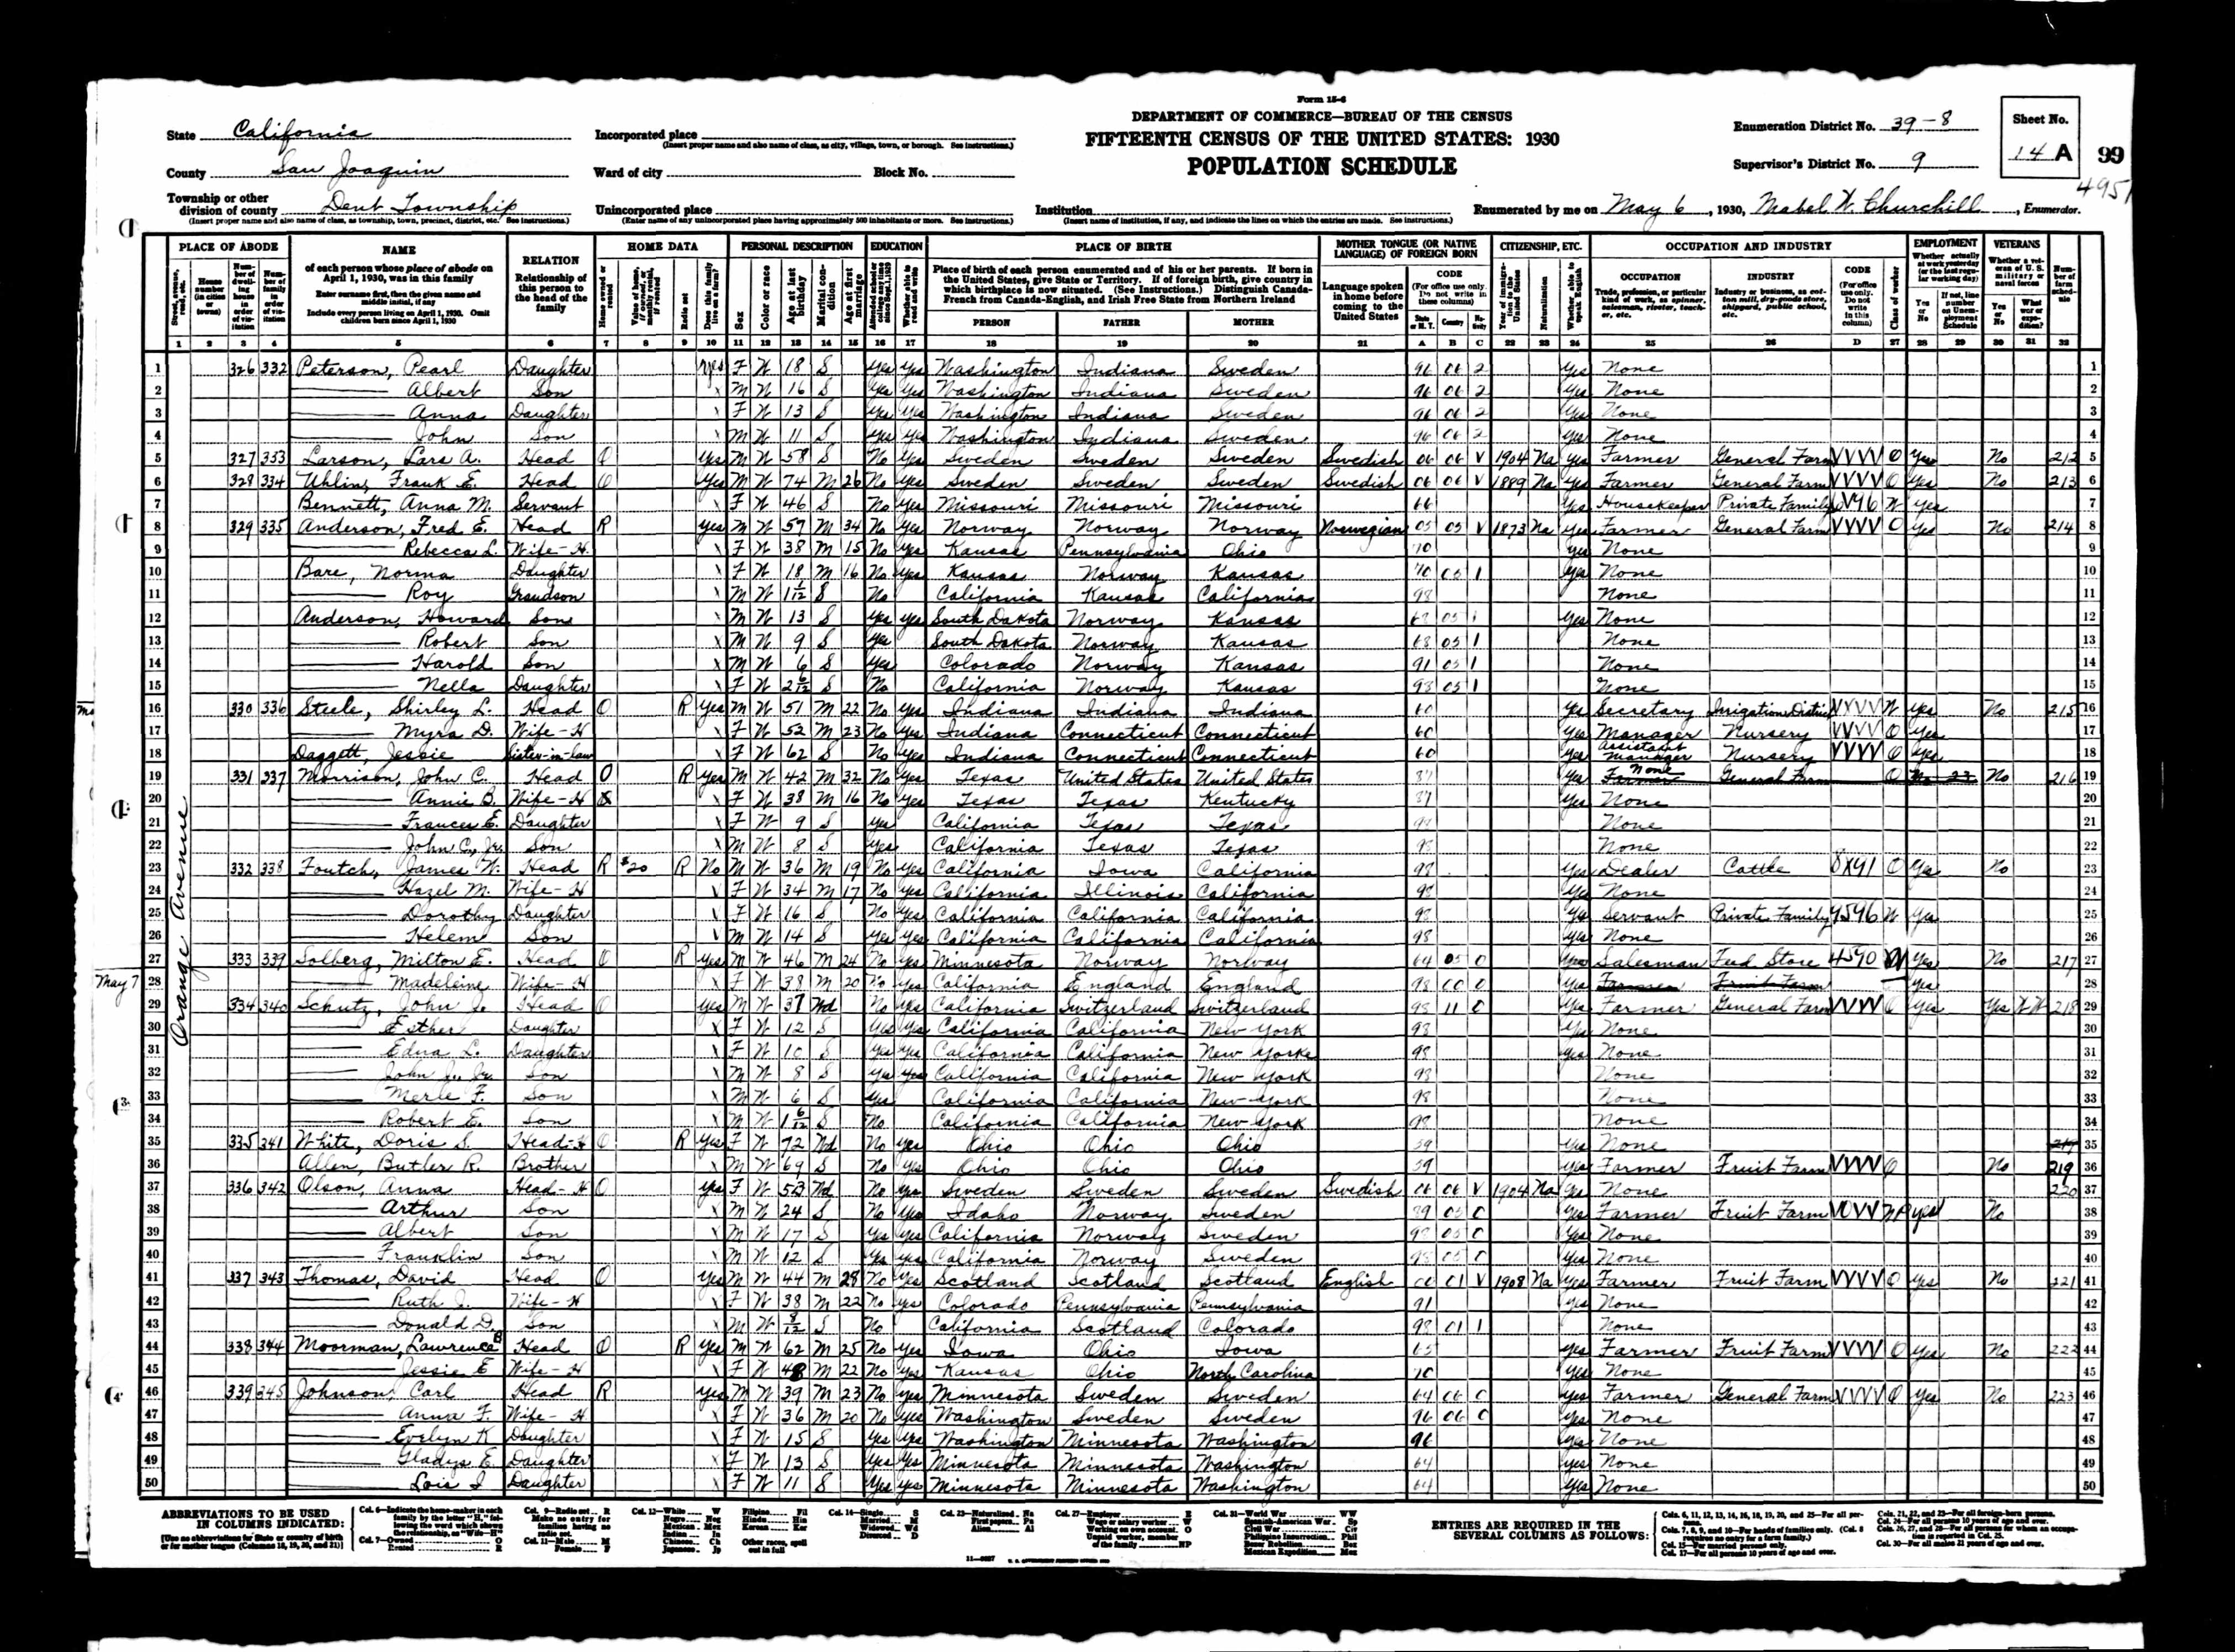 Form 15-6
DEPARTMENT OF COMMERCE—BUREAU OF THE CENSUS
FIFTEENTH CENSUS OF THE UNITED STATES: 1930
POPULATION SCHEDULE
State California
County San Joaquin
Township or other division of county Dent Township
(Insert proper name and also name of class, as township, town, precinct, district, etc. See instructions.)
Incorporated place
(Insert proper name and also name of class, as city, village, town, or borough. See instructions.)
Ward of city Block No.
Unincorporated place
(Enter name of any unincorporated place having approximately 500 inhabitants or more. See instructions.)
Institution
(Insert name of institution, if any, and indicate the lines on which the entries are made. See instructions.)
Enumeration District No. 39-8
Supervisor's District No. 9
Sheet No. 14 A 99
4951
Enumerated by me on May 6, 1930, Mabel W. Churchill, Enumerator.
PLACE OF ABODE NAME RELATION HOME DATA PERSONAL DESCRIPTION EDUCATION PLACE OF BIRTH MOTHER TONGUE (OR NATIVE LANGUAGE) OF FOREIGN BORN CITIZENSHIP, ETC. OCCUPATION AND INDUSTRY EMPLOYMENT VETERANS
PERSON FATHER MOTHER
1 2 3 4 5 6 7 8 9 10 11 12 13 14 15 16 17 18 19 20 21 A B C 22 23 24 25 26 D 27 28 29 30 31 32
Orange Avenue
May 7
1 326 332 Peterson, Pearl Daughter yes F W 18 S yes yes Washington Indiana Sweden 96 06 2 yes None 1
2 Albert Son M W 16 S yes yes Washington Indiana Sweden 96 06 2 yes None 2
3 Anna Daughter F W 13 S yes yes Washington Indiana Sweden 96 06 2 yes None 3
4 John Son M W 11 S yes yes Washington Indiana Sweden 96 06 2 yes None 4
5 327 333 Larson, Lars A. Head O yes M W 58 S No yes Sweden Sweden Sweden Swedish 06 06 V 1904 Na yes Farmer General Farm VVVV O yes No 212 5
6 328 334 Uhlin, Frank E. Head O yes M W 74 M 26 No yes Sweden Sweden Sweden Swedish 06 06 V 1889 Na yes Farmer General Farm VVVV O yes No 213 6
7 Bennett, Anna M. Servant F W 46 S No yes Missouri Missouri Missouri 66 yes Housekeeper Private Family W yes 7
8 329 335 Anderson, Fred E. Head R yes M W 57 M 34 No yes Norway Norway Norway Norwegian 05 05 V 1873 Na yes Farmer General Farm VVVV O yes No 214 8
9 Rebecca L. Wife-H. F W 38 M 15 No yes Kansas Pennsylvania Ohio 70 yes None 9
10 Bare, Norma Daughter F W 18 M 16 No yes Kansas Norway Kansas 70 05 1 yes None 10
11 Roy Grandson M W 1/12 S No California Kansas California 98 None 11
12 Anderson, Howard Son M W 13 S yes yes South Dakota Norway Kansas 68 05 1 yes None 12
13 Robert Son M W 9 S yes South Dakota Norway Kansas 68 05 1 None 13
14 Harold Son M W 6 S yes Colorado Norway Kansas 91 05 1 None 14
15 Nella Daughter F W 2 6/12 S No California Norway Kansas 98 05 1 None 15
16 330 336 Steele, Shirley L. Head O R yes M W 51 M 22 No yes Indiana Indiana Indiana 60 yes Secretary Irrigation District VVVV W yes No 215 16
17 Myra D. Wife-H F W 52 M 23 No yes Indiana Connecticut Connecticut 60 yes Manager Nursery VVVV O yes 17
18 Daggett, Jessie Sister-in-law F W 62 S No yes Indiana Connecticut Connecticut 60 yes Assistant Manager Nursery VVVV O yes 18
19 331 337 Morrison, John C. Head O R yes M W 42 M 32 No yes Texas United States United States 87 yes Farmer None General Farm O No 216 19
20 Annie B. Wife-H F W 38 M 16 No yes Texas Texas Kentucky 87 yes None 20
21 Frances E. Daughter F W 9 S yes California Texas Texas 98 None 21
22 John C., Jr. Son M W 8 S yes California Texas Texas 98 None 22
23 332 338 Foutch, James W. Head R $20 R No M W 36 M 19 No yes California Iowa California 98 yes Dealer Cattle 8X91 O yes No 23
24 Hazel M. Wife-H F W 34 M 17 No yes California Illinois California 98 yes None 24
25 Dorothy Daughter F W 16 S No yes California California California 98 yes Servant Private Family 9596 W yes 25
26 Helem Son M W 14 S yes yes California California California 98 yes None 26
27 333 339 Solberg, Milton E. Head O R yes M W 46 M 24 No yes Minnesota Norway Norway 64 05 0 yes Salesman Feed Store 4590 yes No 217 27
28 Madeleine Wife-H F W 38 M 20 No yes California England England 98 00 0 yes Farmer Fruit Farm yes 28
29 334 340 Schutz, John J. Head O yes M W 37 Wd No yes California Switzerland Switzerland 98 11 0 yes Farmer General Farm VVVV O yes Yes WW 218 29
30 Esther Daughter F W 12 S yes yes California California New York 98 yes None 30
31 Edna L. Daughter F W 10 S yes yes California California New Yorke 98 yes None 31
32 John J., Jr. Son M W 8 S yes yes California California New York 98 None 32
33 Merle F. Son M W 6 S yes California California New York 98 None 33
34 Robert E. Son M W 1 6/12 S No California California New York 98 None 34
35 335 341 White, Doris S. Head-H O R yes F W 72 Wd No yes Ohio Ohio Ohio 59 yes None 219 35
36 Allen, Butler R. Brother M W 69 S No yes Ohio Ohio Ohio 59 yes Farmer Fruit Farm VVVV O No 219 36
37 336 342 Olson, Anna Head-H O yes F W 53 Wd No yes Sweden Sweden Sweden Swedish 06 06 V 1904 Na yes None 220 37
38 Arthur Son M W 24 S No yes Idaho Norway Sweden 89 05 0 yes Farmer Fruit Farm VOVV NP yes No 38
39 Albert Son M W 17 S yes yes California Norway Sweden 98 05 0 yes None 39
40 Franklin Son M W 12 S yes yes California Norway Sweden 98 05 0 yes None 40
41 337 343 Thomas, David Head O yes M W 44 M 28 No yes Scotland Scotland Scotland English 00 01 V 1908 Na yes Farmer Fruit Farm VVVV O yes No 221 41
42 Ruth J. Wife-H F W 38 M 22 No yes Colorado Pennsylvania Pennsylvania 91 yes None 42
43 Donald D. Son M W 8/12 S No California Scotland Colorado 98 01 1 None 43
44 338 344 Moorman, Lawrence B Head O R yes M W 62 M 25 No yes Iowa Ohio Iowa 65 yes Farmer Fruit Farm VVVV O yes No 222 44
45 Jessie E Wife-H F W 48 M 22 No yes Kansas Ohio North Carolina 70 yes None 45
46 339 345 Johnson, Carl Head R yes M W 39 M 23 No yes Minnesota Sweden Sweden 64 06 0 yes Farmer General Farm VVVV O yes No 223 46
47 Anna F. Wife-H F W 36 M 20 No yes Washington Sweden Sweden 96 06 0 yes None 47
48 Evelyn K Daughter F W 15 S yes yes Washington Minnesota Washington 96 yes None 48
49 Gladys E. Daughter F W 13 S yes yes Minnesota Minnesota Washington 64 yes None 49
50 Lois I Daughter F W 11 S yes yes Minnesota Minnesota Washington 64 yes None 50
ABBREVIATIONS TO BE USED IN COLUMNS INDICATED:
ENTRIES ARE REQUIRED IN THE SEVERAL COLUMNS AS FOLLOWS: